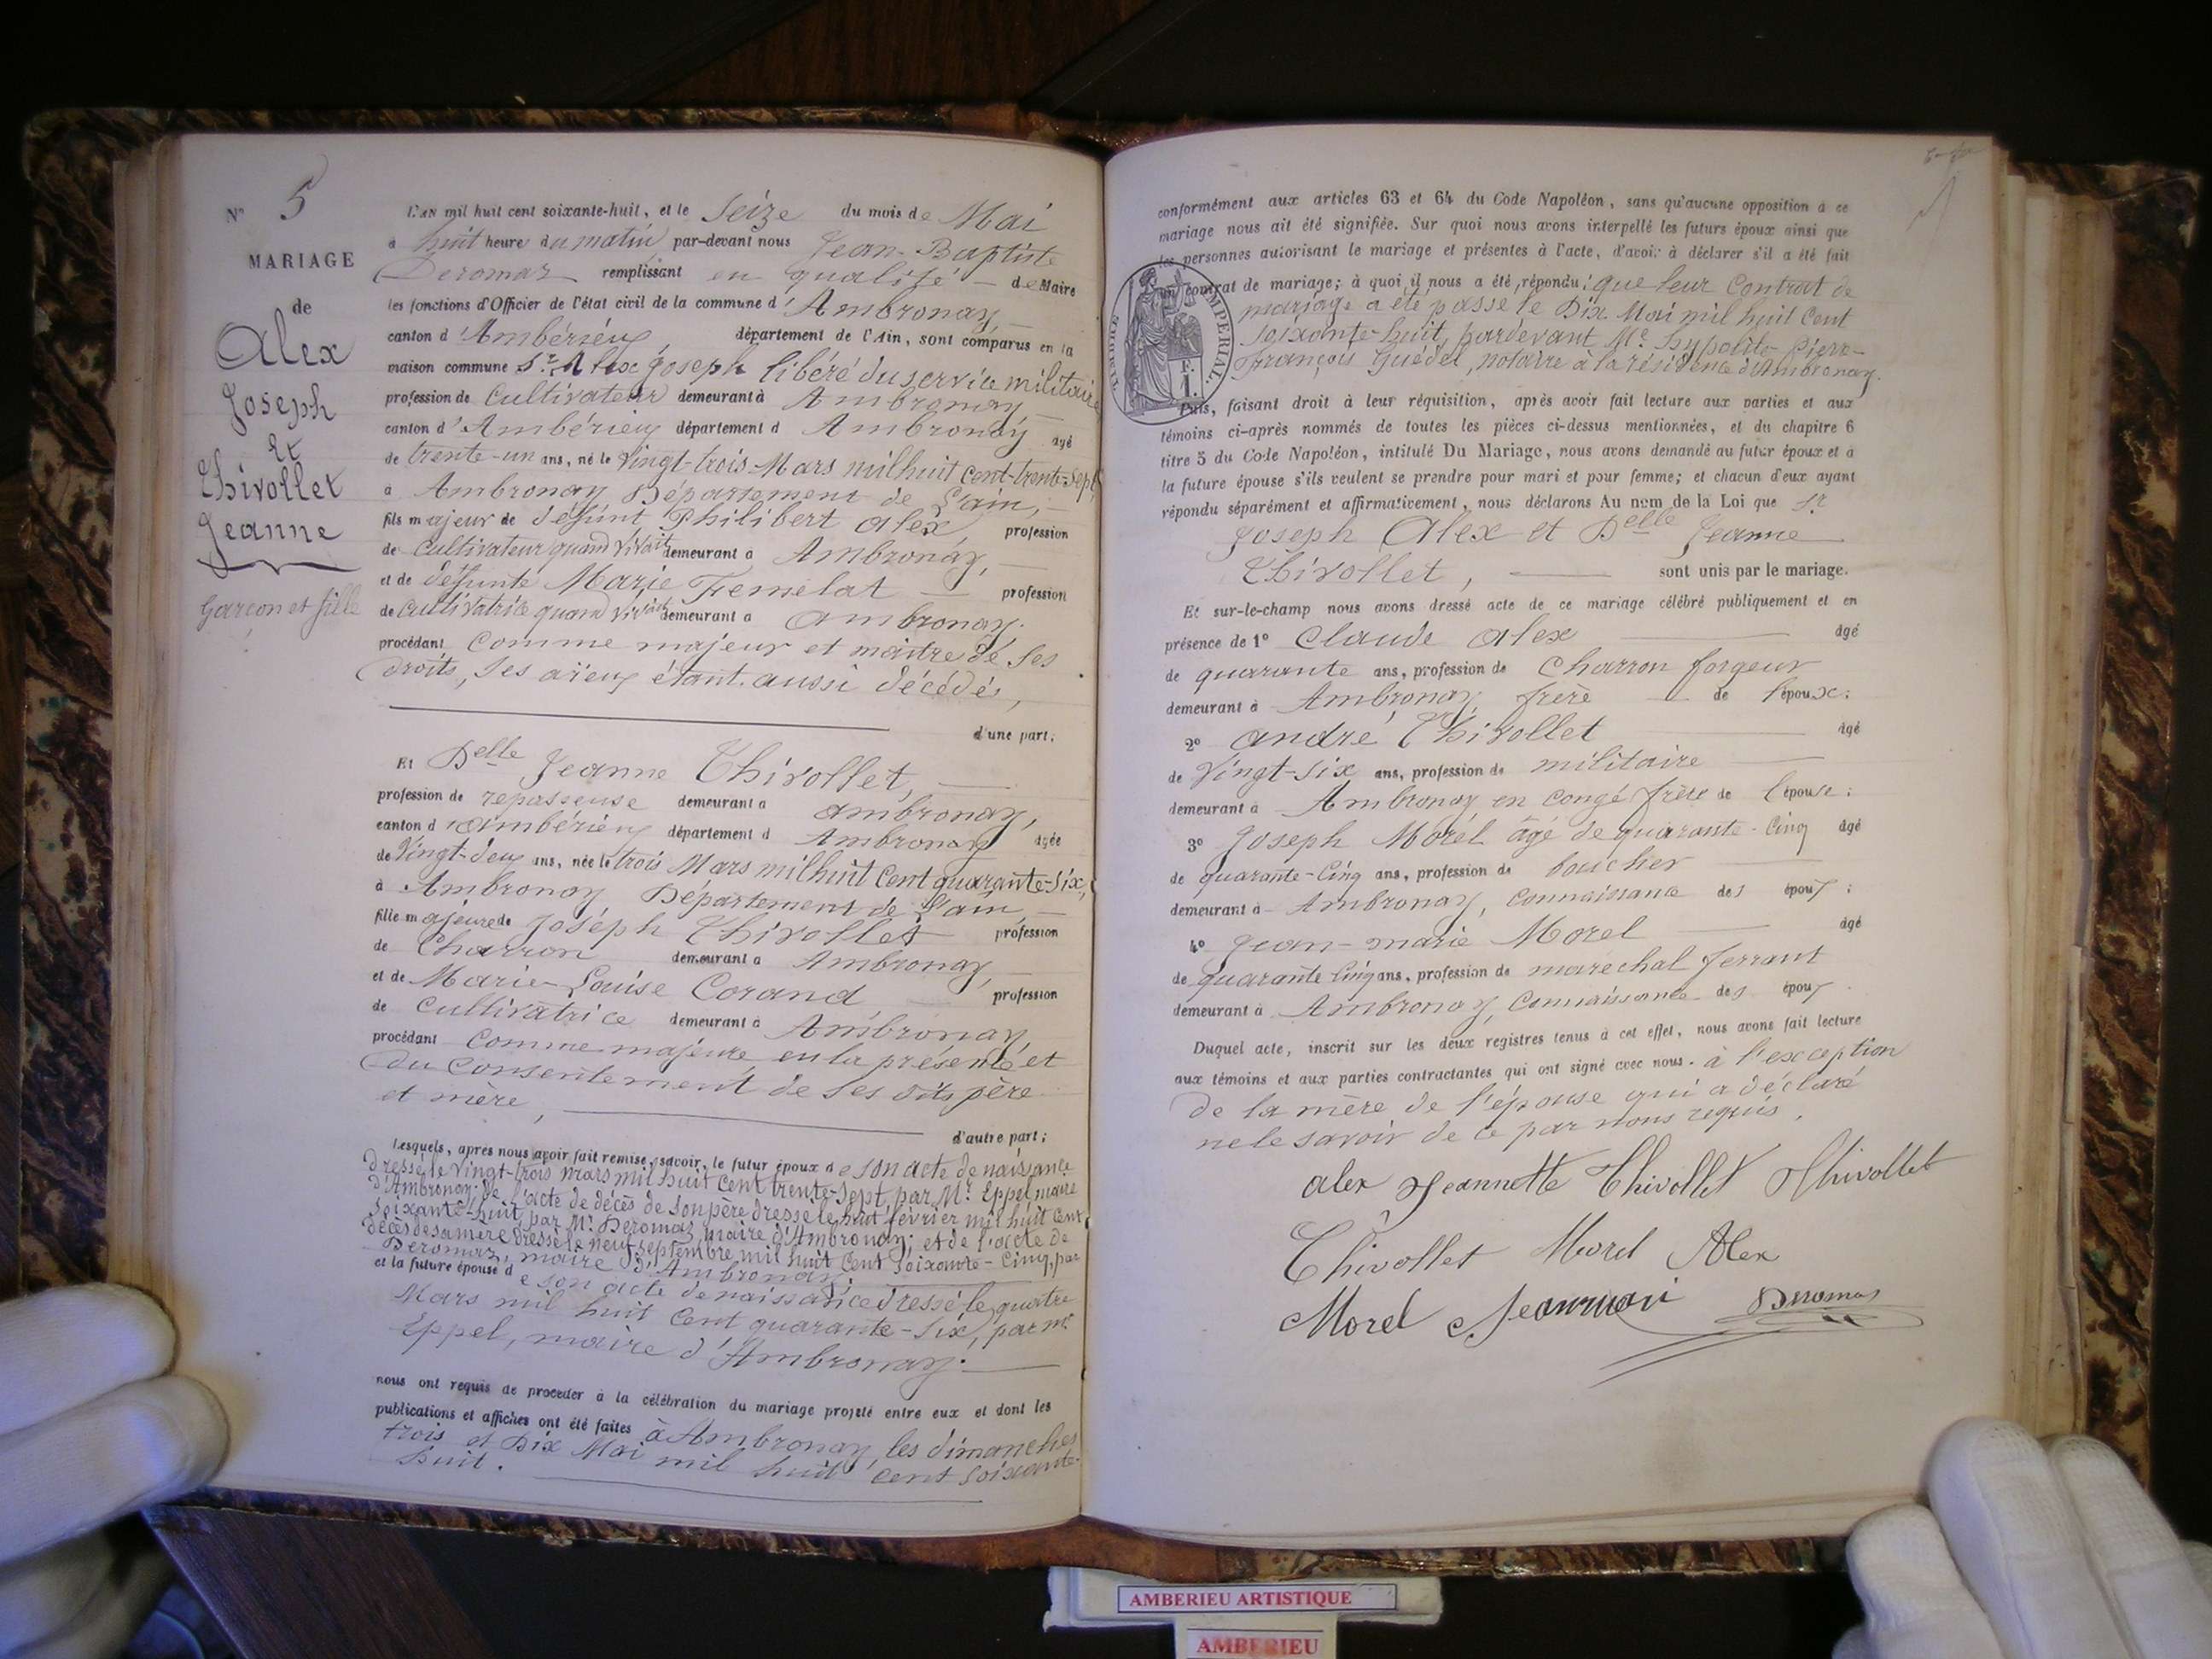 N° 5
MARIAGE
de
Alex
Joseph
Et
Thivollet
Jeanne
Garçon et fille
L'AN mil huit cent soixante-huit, et le Seize du mois de Mai
à huit heure du matin, par-devant nous Jean-Baptiste
Deromas remplissant en qualité de Maire
les fonctions d'Officier de l'état civil de la commune d'Ambronay
canton d'Ambérieux, département de l'Ain, sont comparus en la
maison commune Sr. Alex Joseph libéré du service militaire
profession de Cultivateur demeurant à Ambronay
canton d'Ambérieux département d Ambronay agé
de trente-un ans, né le Vingt-trois Mars mil huit cent-trente-sept
à Ambronay, Département de L'ain,
fils majeur de défunt Philibert Alex, profession
de cultivateur quand vivait demeurant à Ambronay,
et de défunte Marie Tremelat profession
de cultivatrice quand vivait demeurant à Ambronay.
procédant comme majeur et maitre de ses
droits, ses aïeux étant aussi décédés,
d'une part;
Et Delle Jeanne Thivollet,
profession de repasseuse demeurant à ambronay,
canton d'ambérieux département d Ambronay agée
de Vingt-deux ans, née le trois Mars mil huit Cent quarante-six,
à Ambronay, Département de L'ain
fille majeure de Joseph Thivollet profession
de Charron demeurant à Ambronay,
et de Marie-Louise Corand profession
de Cultivatrice demeurant à Ambronay,
procédant Comme majeure en la présence et
du consentement de ses dits père
et mère,
d'autre part;
Lesquels, après nous avoir fait remise, savoir, le futur époux de son acte de naissance
dressé le Vingt-trois mars mil huit Cent trente-sept, par Mr. Eppel, maire
d'Ambronay; de l'acte de décès de son père dressé le huit février mil huit Cent
Soixante-huit par Mr. Deromas, maire d'Ambronay; et de l'acte de
décès de sa mère dressé le neuf septembre mil huit Cent soixante-Cinq, par
Deromas, maire d'Ambronay.
et la future épouse de son acte de naissance dressé le quatre
Mars mil huit cent quarante-six, par mr
Eppel, maire d'Ambronay.
nous ont requis de procéder à la célébration du mariage projeté entre eux et dont les
publications et affiches ont été faites à Ambronay, les dimanches
trois et Dix Mai mil huit cent soixante-
huit.
conformément aux articles 63 et 64 du Code Napoléon, sans qu'aucune opposition à ce
mariage nous ait été signifiée. Sur quoi nous avons interpellé les futurs époux ainsi que
les personnes autorisant le mariage et présentes à l'acte, d'avoir à déclarer s'il a été fait
un contrat de mariage; à quoi il nous a été répondu: que leur Contrat de
mariage a été passé le Dix Mai mil huit Cent
soixante-huit, pardevant Me. Hypolite-Pierre-
François Guédel, notaire à la résidence d'Ambronay.
TIMBRE IMPERIAL.
F.
1.
Puis, faisant droit à leur réquisition, après avoir fait lecture aux parties et aux
témoins ci-après nommés de toutes les pièces ci-dessus mentionnées, et du chapitre 6
titre 5 du Code Napoléon, intitulé Du Mariage, nous avons demandé au futur époux et à
la future épouse s'ils veulent se prendre pour mari et pour femme; et chacun d'eux ayant
répondu séparément et affirmativement, nous déclarons Au nom de la Loi que Sr
Joseph Alex et Delle Jeanne
Thivollet, sont unis par le mariage.
Et sur-le-champ nous avons dressé acte de ce mariage célébré publiquement et en
présence de 1° Claude Alex agé
de quarante ans, profession de Charron forgeur
demeurant à Ambronay, frère de l'époux;
2° André Thivollet agé
de Vingt-six ans, profession de militaire
demeurant à Ambronay en congé frère de l'épouse;
3° Joseph Morel âgé de quarante-Cinq agé
de quarante-Cinq ans, profession de boucher
demeurant à Ambronay, Connaissance des époux;
4° Jean-marie Morel agé
de quarante cinq ans, profession de marechal ferrant
demeurant à Ambronay, Connaissance des époux
Duquel acte, inscrit sur les deux registres tenus à cet effet, nous avons fait lecture
aux témoins et aux parties contractantes qui ont signé avec nous. à l'exception
de la mère de l'épouse qui a déclaré
ne le savoir de ce par nous requis.
alex Jeannette Thivollet Thivollet
Thivollet Morel Alex
Morel Jeanmari Deromas
AMBERIEU ARTISTIQUE
AMBERIEU